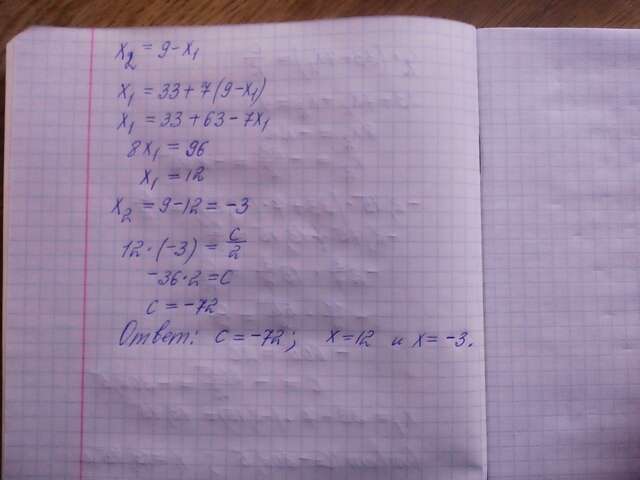 x₂ = 9-x₁
x₁ = 33+7(9-x₁)
x₁ = 33+63-7x₁
8x₁ = 96
x₁ = 12
x₂ = 9-12 = -3
12·(-3) = c/2
-36·2 = c
c = -72
Ответ: c = -72; x=12 и x= -3.